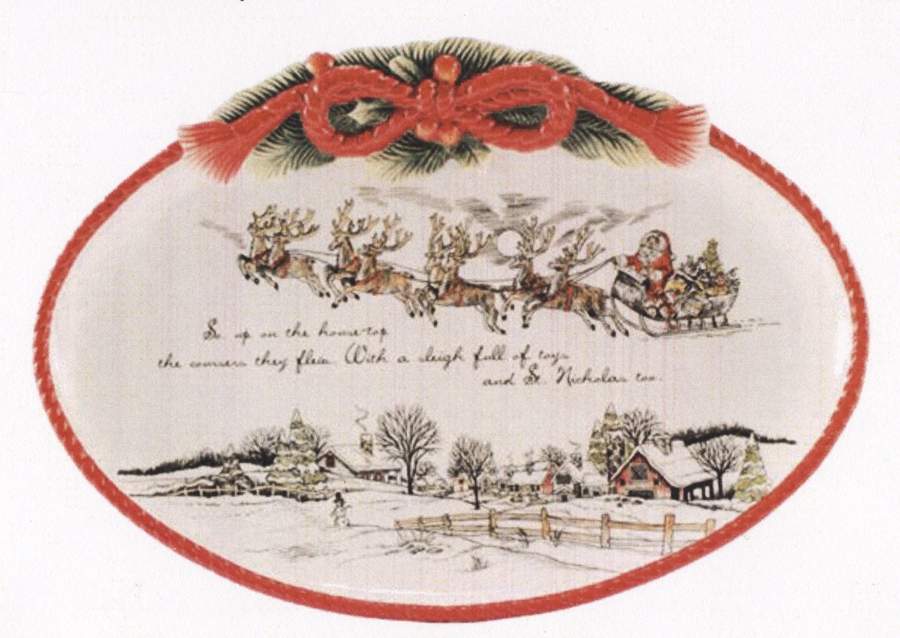 So up on the house-top
the coursers they flew. With a sleigh full of toys
and St. Nicholas too.